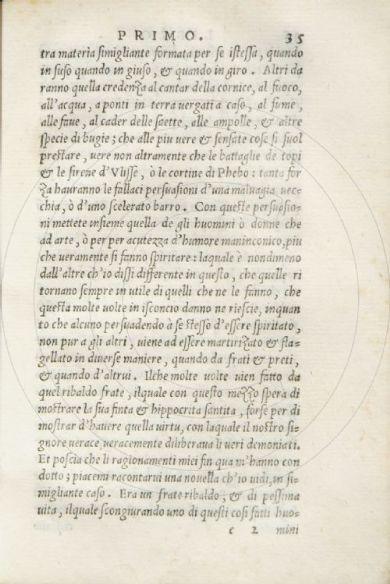 PRIMO. 35
tra materia simigliante formata per se istessa, quando
in suso quando in giuso, & quando in giro. Altri da
ranno quella credenza al cantar della cornice, al fuoco,
all'acqua, a ponti in terra uergati a caso, al fume,
alle faue, al cader delle saette, alle ampolle, & altre
specie di bugie; che alle piu uere & sensate cose si suol
prestare, uere non altramente che le battaglie de topi
& le sirene d'Vlisse, ò le cortine di Phebo: tanta for
za hauranno le fallaci persuasioni d'una maluagia uec
chia, ò d'uno scelerato barro. Con queste persuasio-
ni mettete insieme quella de gli huomini ò donne che
ad arte, ò per per acutezza d'humore maninconico, piu
che ueramente si fanno spiritare: laquale è nondimeno
dall'altre ch'io dissi differente in questo, che quelle ri
tornano sempre in utile di quelli che ne le fanno, che
questa molte uolte in isconcio danno ne riescie, inquan
to che alcuno persuadendo à se stesso d'essere spiritato,
non pur a gli altri, uiene ad essere martirizato & fla-
gellato in diuerse maniere, quando da frati & preti,
& quando d'altrui. Ilche molte uolte uien fatto da
quel ribaldo frate, ilquale con questo mezzo spera di
mostrare la sua finta & hippocrita santita, forse per di
mostrar d'hauere quella uirtu, con laquale il nostro si-
gnore uerace, ueracemente diliberaua li ueri demoniati.
Et poscia che li ragionamenti miei fin qua m'hanno con
dotto; piacemi racontarui una nouella ch'io uidi, in si-
migliante caso. Era un frate ribaldo, & di pessima
uita, ilquale scongiurando uno di questi cosi fatti huo-
c 2 mini